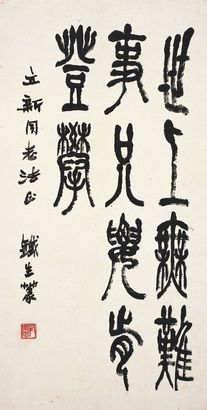 世上無難
事只要肯
登攀
立新同志法正
鐵生篆